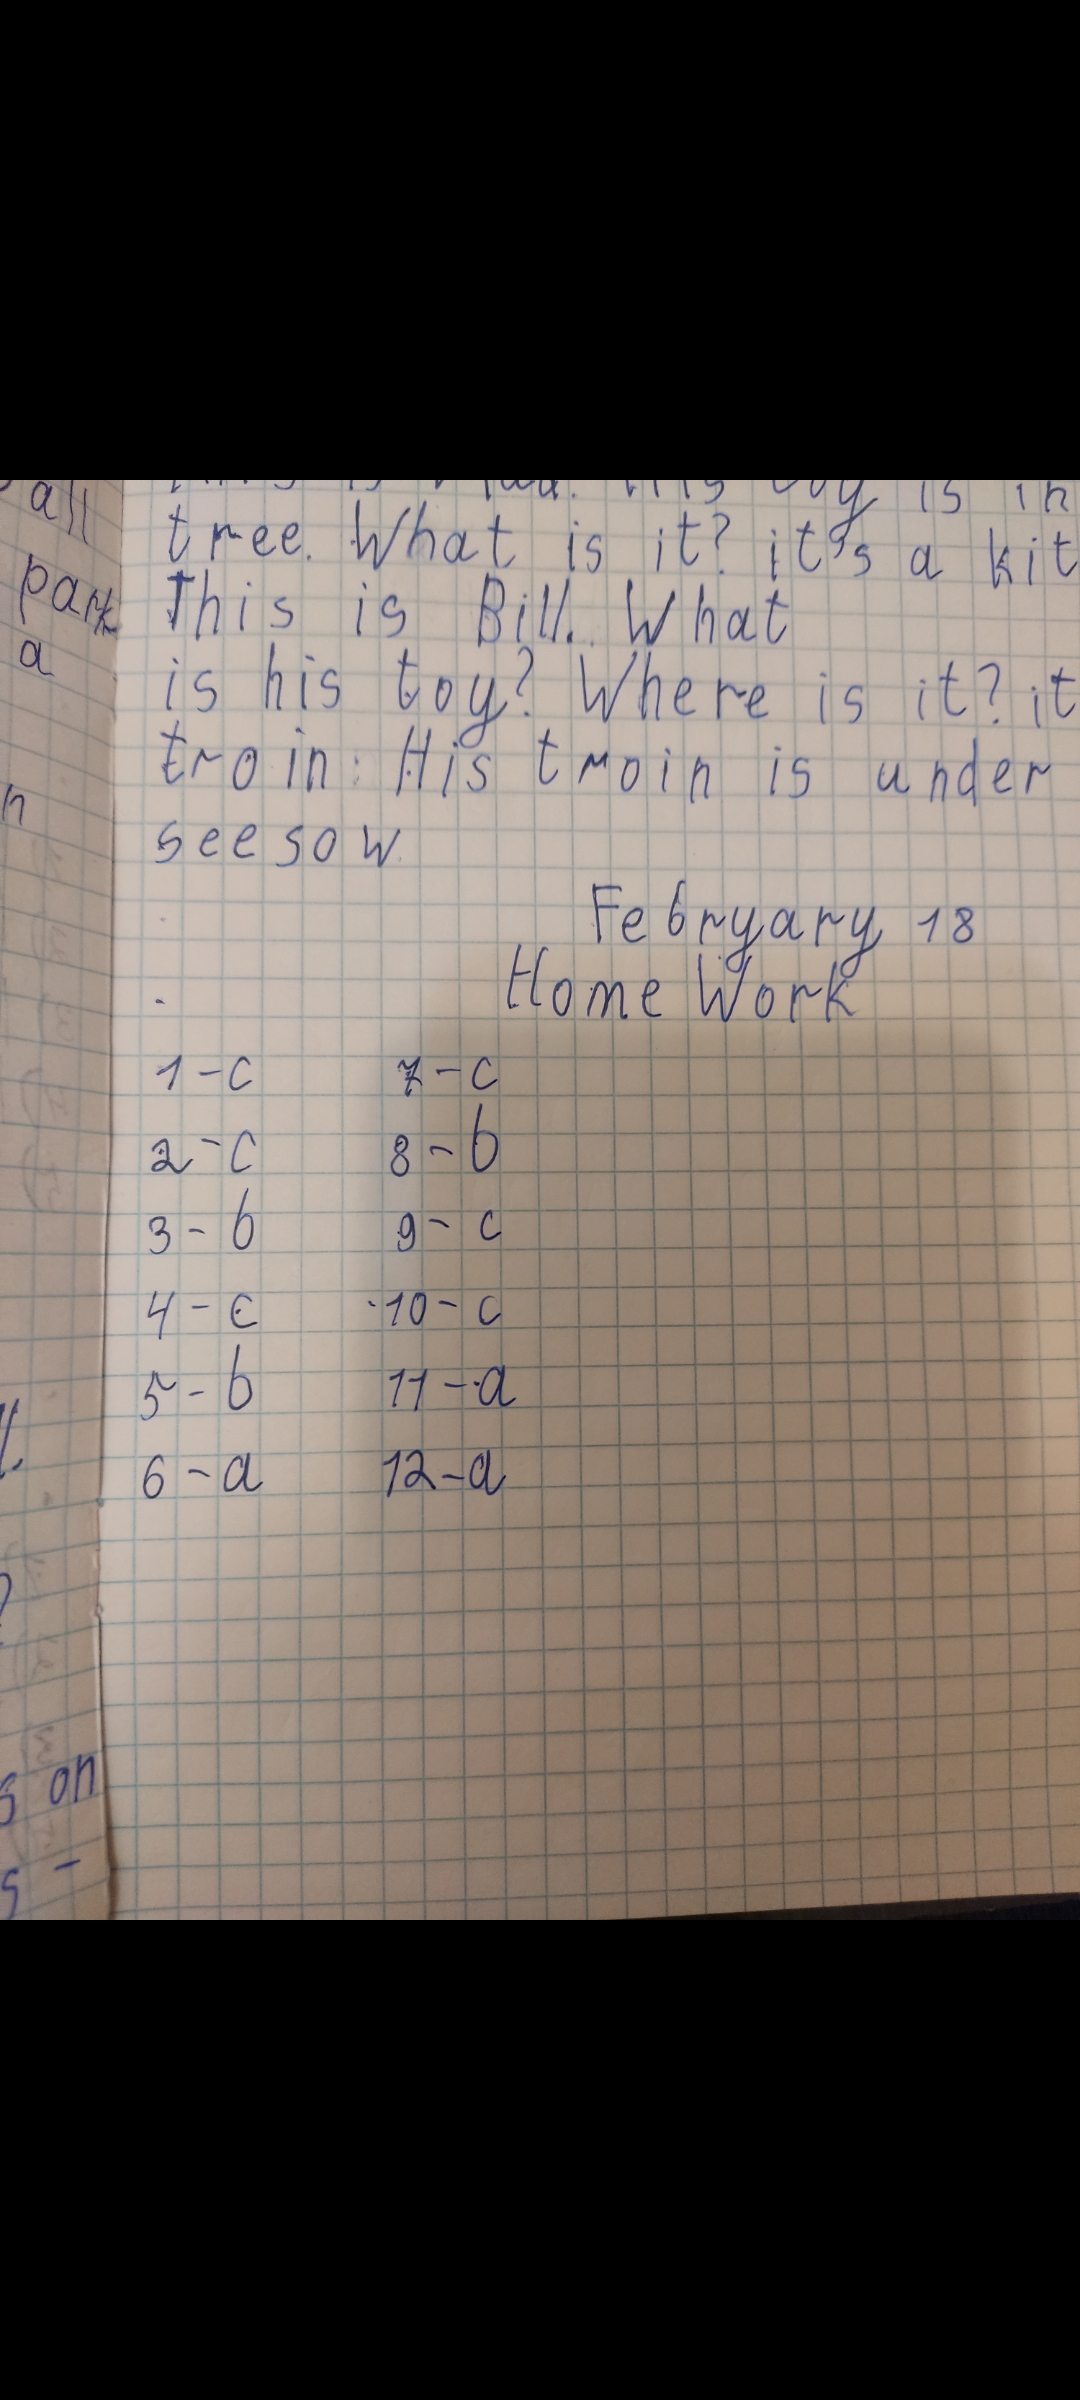 all
park
a
n
tree. What is it? it's a kit
This is Bill. What
is his toy? Where is it? it
troin. His troin is under
seesow
Febryary 18
Home Work
1-c 7-c
2-c 8-b
3-b 9-c
4-c 10-c
5-b 11-a
6-a 12-a
on